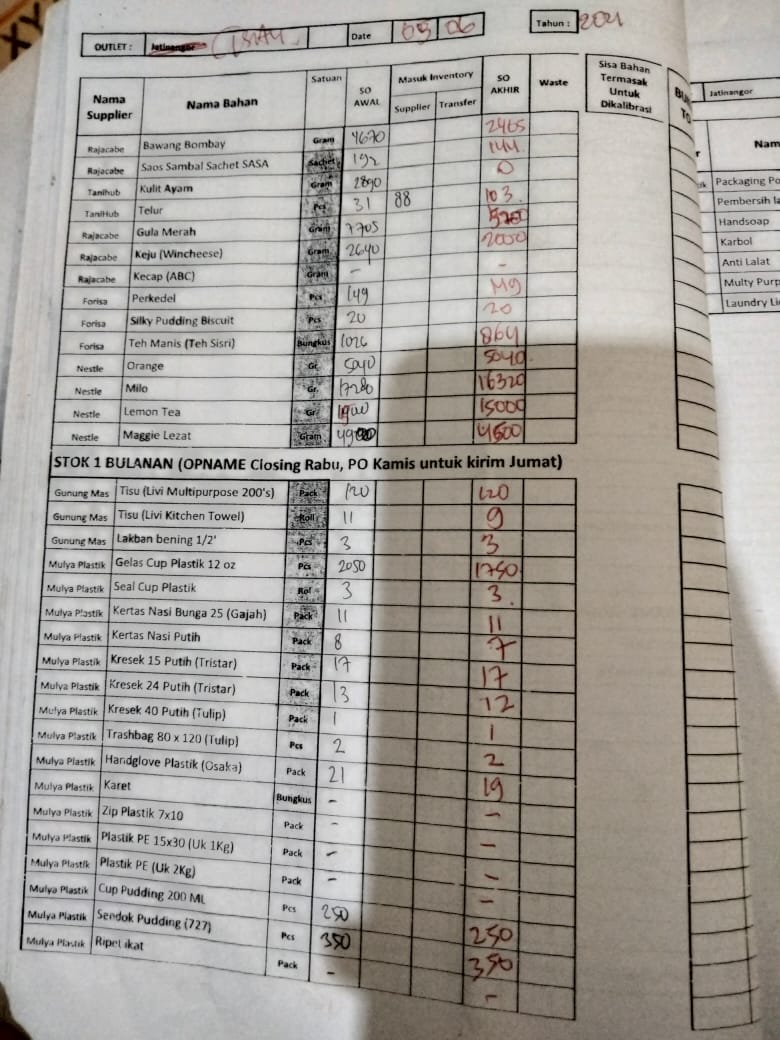 OUTLET : Jatinangor Date 03 06 Tahun : 2021
Nama Supplier Nama Bahan Satuan SO AWAL Masuk Inventory Supplier Transfer SO AKHIR Waste Sisa Bahan Termasak Untuk Dikalibrasi
Rajacabe Bawang Bombay Gram 4670 2465
Rajacabe Saos Sambal Sachet SASA Sachet 192 144
Tanihub Kulit Ayam Gram 2890 0
TaniHub Telur Pcs 31 88 103
Rajacabe Gula Merah Gram 7705
Rajacabe Keju (Wincheese) Gram 2640 2000
Rajacabe Kecap (ABC) Gram - -
Forisa Perkedel Pcs 149
Forisa Silky Pudding Biscuit Pcs 20 20
Forisa Teh Manis (Teh Sisri) Bungkus 1026 864
Nestle Orange Gr 5040 5040
Nestle Milo Gr 17280 16320
Nestle Lemon Tea Gr 15000
Nestle Maggie Lezat Gram 4500
STOK 1 BULANAN (OPNAME Closing Rabu, PO Kamis untuk kirim Jumat)
Gunung Mas Tisu (Livi Multipurpose 200's) Pack 120 120
Gunung Mas Tisu (Livi Kitchen Towel) Roll 11 9
Gunung Mas Lakban bening 1/2' Pcs 3 3
Mulya Plastik Gelas Cup Plastik 12 oz Pcs 2050 1750
Mulya Plastik Seal Cup Plastik Rol 3 3
Mulya Plastik Kertas Nasi Bunga 25 (Gajah) Pack 11 11
Mulya Plastik Kertas Nasi Putih 8 7
Mulya Plastik Kresek 15 Putih (Tristar) Pack 17 17
Mulya Plastik Kresek 24 Putih (Tristar) Pack 13 12
Mulya Plastik Kresek 40 Putih (Tulip) Pack 1 1
Mulya Plastik Trashbag 80 x 120 (Tulip) Pcs 2 2
Mulya Plastik Handglove Plastik (Osaka) Pack 21 19
Mulya Plastik Karet Bungkus - -
Mulya Plastik Zip Plastik 7x10 Pack - -
Mulya Plastik Plastik PE 15x30 (Uk 1Kg) Pack - -
Mulya Plastik Plastik PE (Uk 2Kg) Pack - -
Mulya Plastik Cup Pudding 200 ML Pcs 250 250
Mulya Plastik Sendok Pudding (727) Pcs 350 350
Mulya Plastik Pack - -
Jatinangor
Nam
Packaging Po
Pembersih la
Handsoap
Karbol
Anti Lalat
Multy Purp
Laundry Li